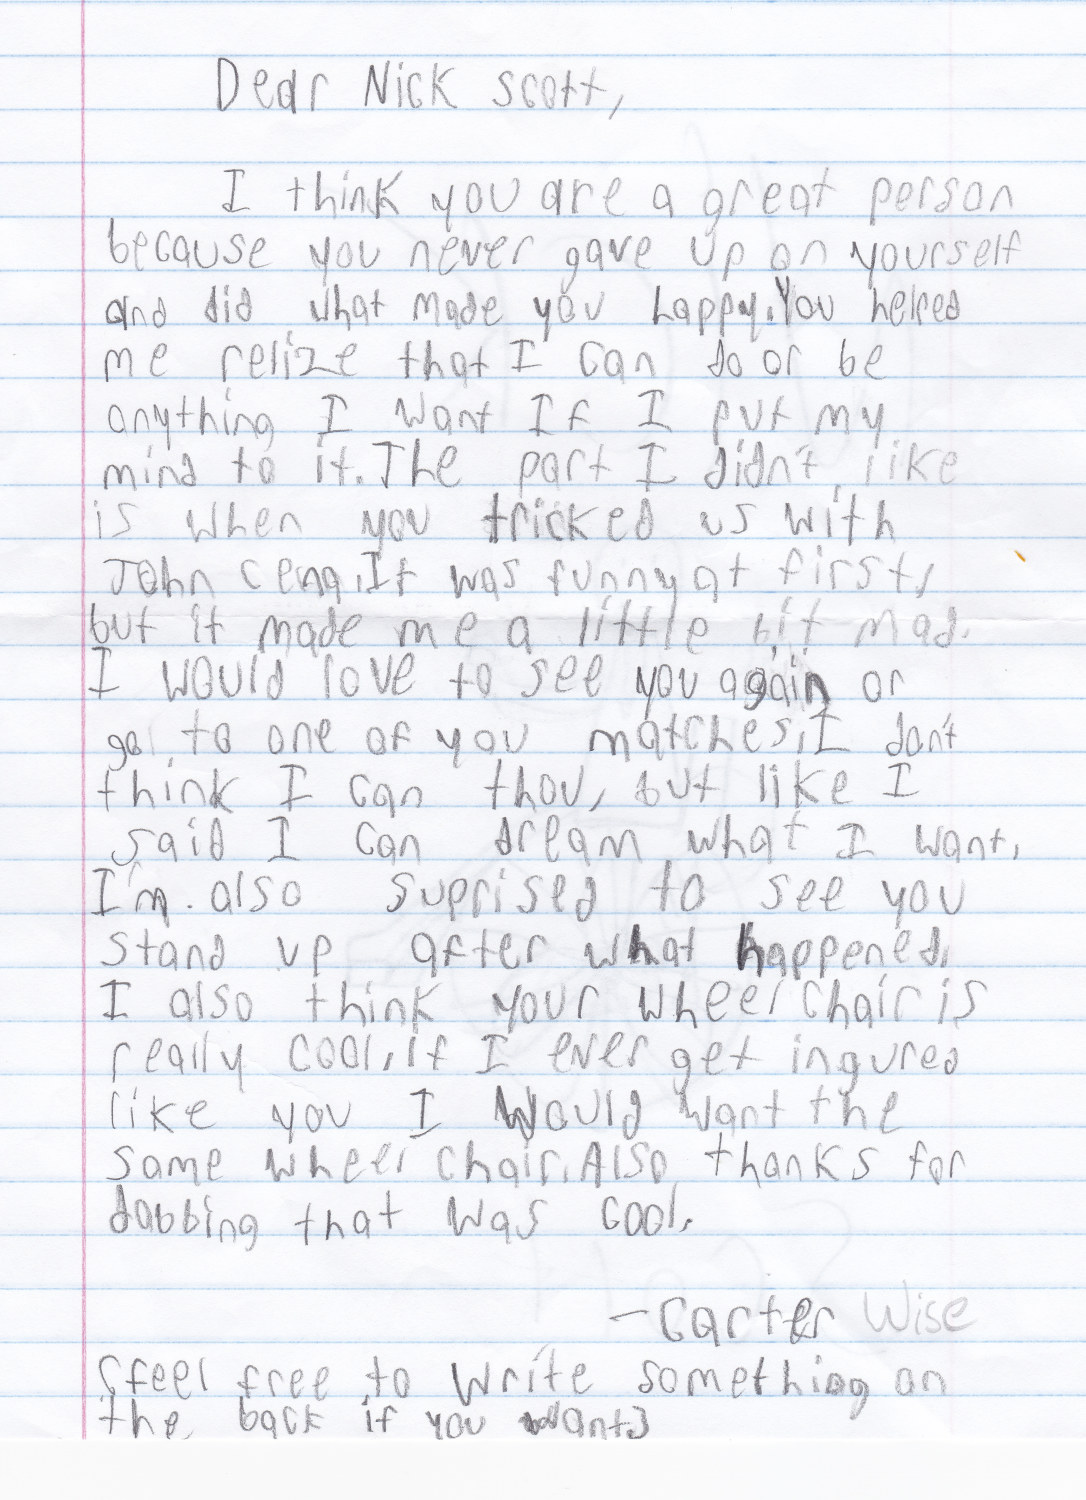 Dear Nick scott,
I think you are a great person
because you never gave up on yourself
and did what made you happy. You helped
me relize that I can do or be
anything I want If I put my
mind to it. The part I didn't like
is when you tricked us with
John cena. It was funny at first,
but it made me a little bit mad.
I would love to see you again or
go to one of you matches, I don't
think I can thou, but like I
said I can dream what I want.
I'm also suprised to see you
stand up after what happened.
I also think your wheel chair is
really cool, if I ever get ingured
like you I Would want the
same wheel chair. Also thanks for
dabbing that was cool.
-Carter Wise
(feel free to write something on
the back if you want)